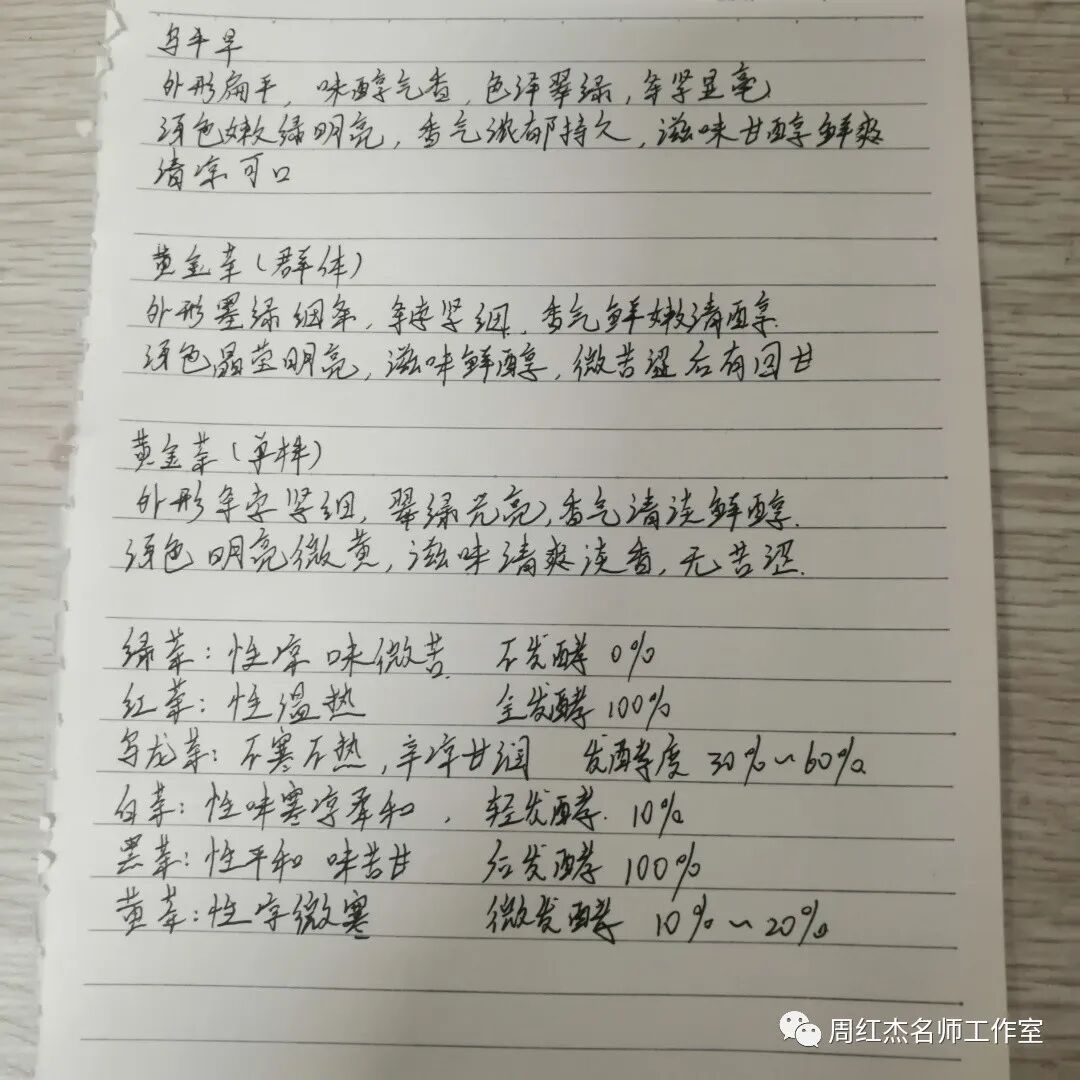 乌牛早
外形扁平，味醇气香，色泽翠绿，条紧显毫
汤色嫩绿明亮，香气浓郁持久，滋味甘醇鲜爽
清凉可口
黄金茶（群体）
外形墨绿细条，条索紧细，香气鲜嫩清醇.
汤色晶莹明亮，滋味鲜醇，微苦涩后有回甘
黄金茶（单株）
外形条索紧细，翠绿光亮，香气清淡鲜醇.
汤色明亮微黄，滋味清爽淡香，无苦涩.
绿茶：性凉 味微苦 不发酵 0%
红茶：性温热 全发酵 100%
乌龙茶：不寒不热，辛凉甘润 发酵度 30%~60%
白茶：性味寒凉柔和，轻发酵. 10%
黑茶：性平和 味苦甘 后发酵 100%
黄茶：性凉微寒 微发酵 10%~20%
周红杰名师工作室